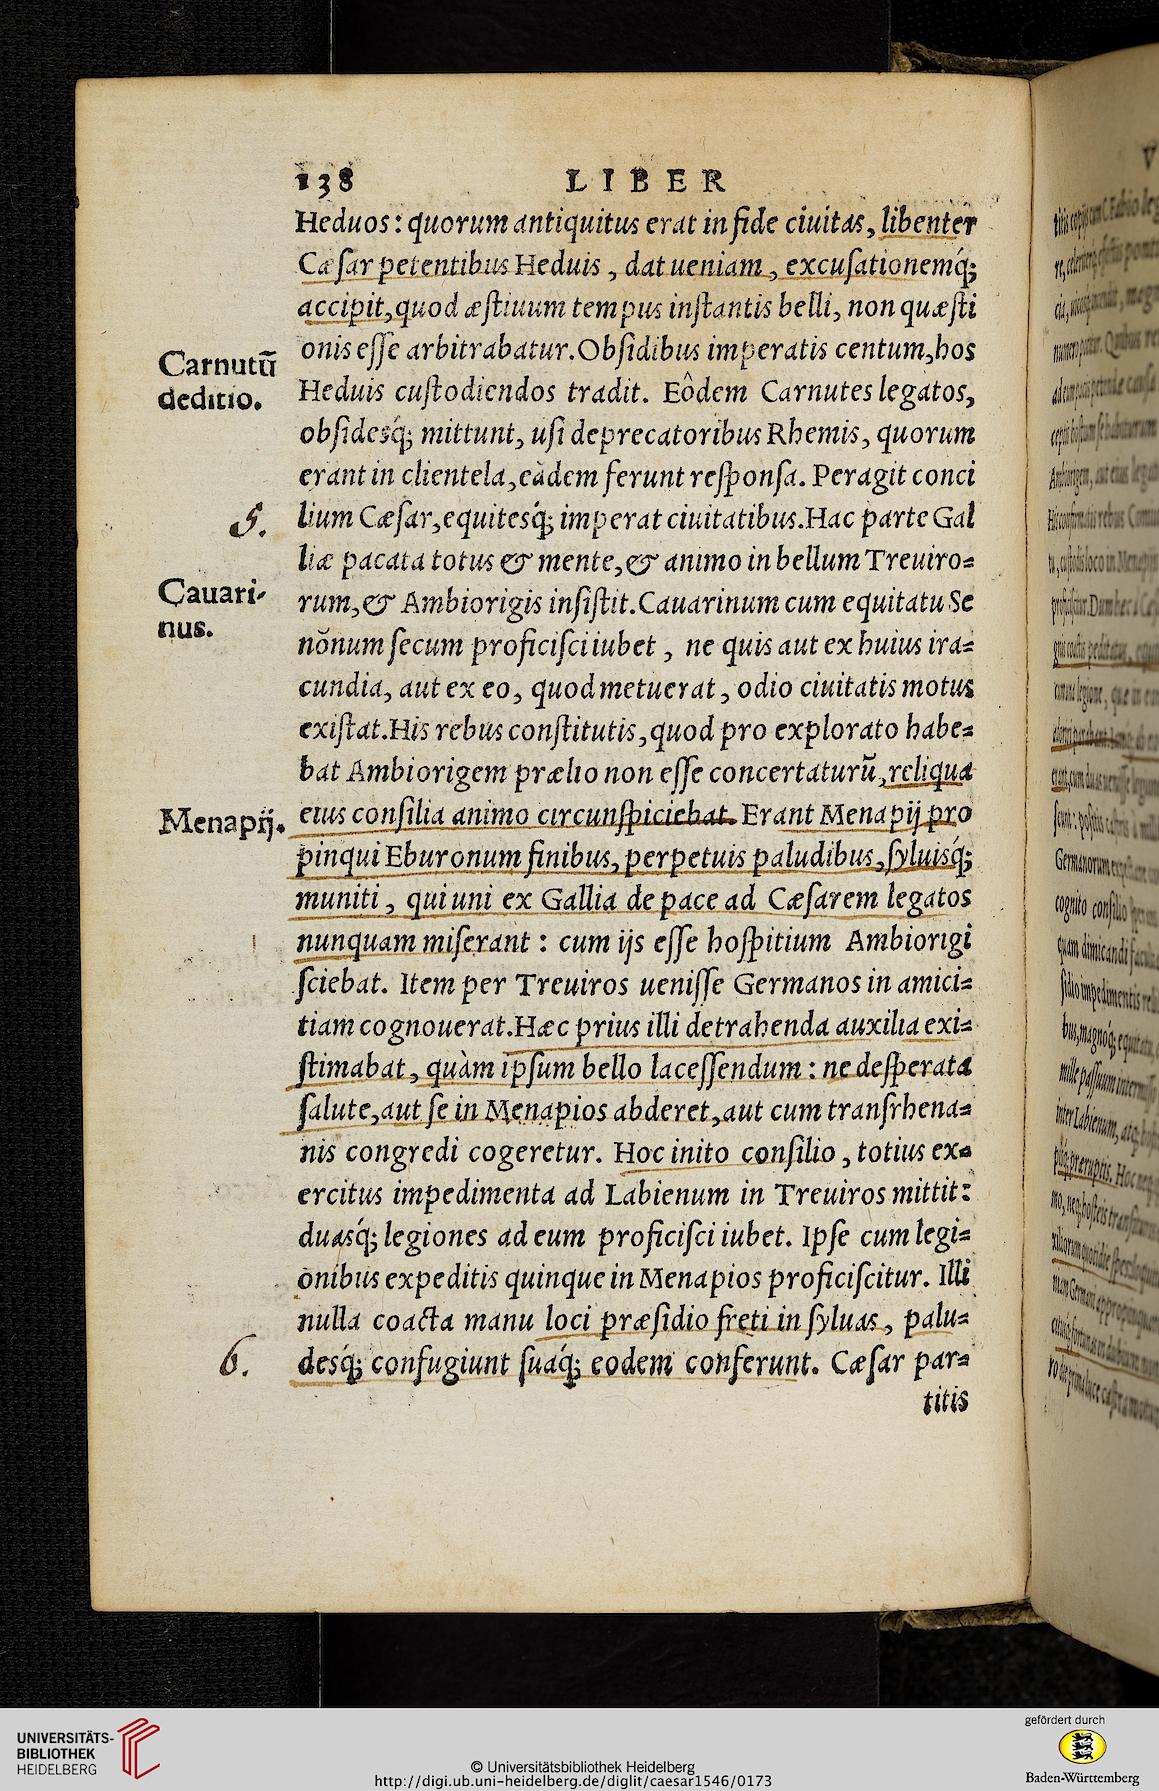 138 LIBER
Heduos: quorum antiquitus erat in fide ciuitas, libenter
Cæſar petentibus Heduis, dat ueniam, excuſationemq́;
accipit, quod æſtiuum tempus inſtantis belli, non quæſti
onis eſſe arbitrabatur. Obſidibus imperatis centum, hos
Carnutū
Heduis cuſtodiendos tradit. Eôdem Carnutes legatos,
deditio.
obſidesq́; mittunt, uſi deprecatoribus Rhemis, quorum
erant in clientela, eàdem ferunt reſponſa. Peragit conci
5.
lium Cæſar, equitesq́; imperat ciuitatibus. Hac parte Gal
liæ pacata totus & mente, & animo in bellum Treuiro=
Cauari-
rum, & Ambiorigis inſiſtit. Cauarinum cum equitatu Se
nus.
nŏnum ſecum proficiſci iubet, ne quis aut ex huius ira=
cundia, aut ex eo, quod metuerat, odio ciuitatis motus
exiſtat. His rebus conſtitutis, quod pro explorato habe=
bat Ambiorigem prælio non eſſe concertaturū, reliqua
Menapij.
eius conſilia animo circunſpiciebat. Erant Menapij pro
pinqui Eburonum finibus, perpetuis paludibus, ſyluisq́;
muniti, qui uni ex Gallia de pace ad Cæſarem legatos
nunquam miſerant: cum ijs eſſe hoſpitium Ambiorigi
ſciebat. Item per Treuiros ueniſſe Germanos in amici=
tiam cognouerat. Hæc prius illi detrahenda auxilia exi=
ſtimabat, quàm ipſum bello laceſſendum: ne deſperata
ſalute, aut ſe in Menapios abderet, aut cum tranſrhena=
nis congredi cogeretur. Hoc inito conſilio, totius ex=
ercitus impedimenta ad Labienum in Treuiros mittit:
duasq́; legiones ad eum proficiſci iubet. Ipſe cum legi=
onibus expeditis quinque in Menapios proficiſcitur. Illi
nulla coacta manu loci præſidio freti in ſyluas, palu=
6.
desq́; confugiunt ſuaq́; eodem conferunt. Cæſar par=
titis
UNIVERSITÄTS-
BIBLIOTHEK
HEIDELBERG
© Universitätsbibliothek Heidelberg
http://digi.ub.uni-heidelberg.de/diglit/caesar1546/0173
gefördert durch
Baden-Württemberg